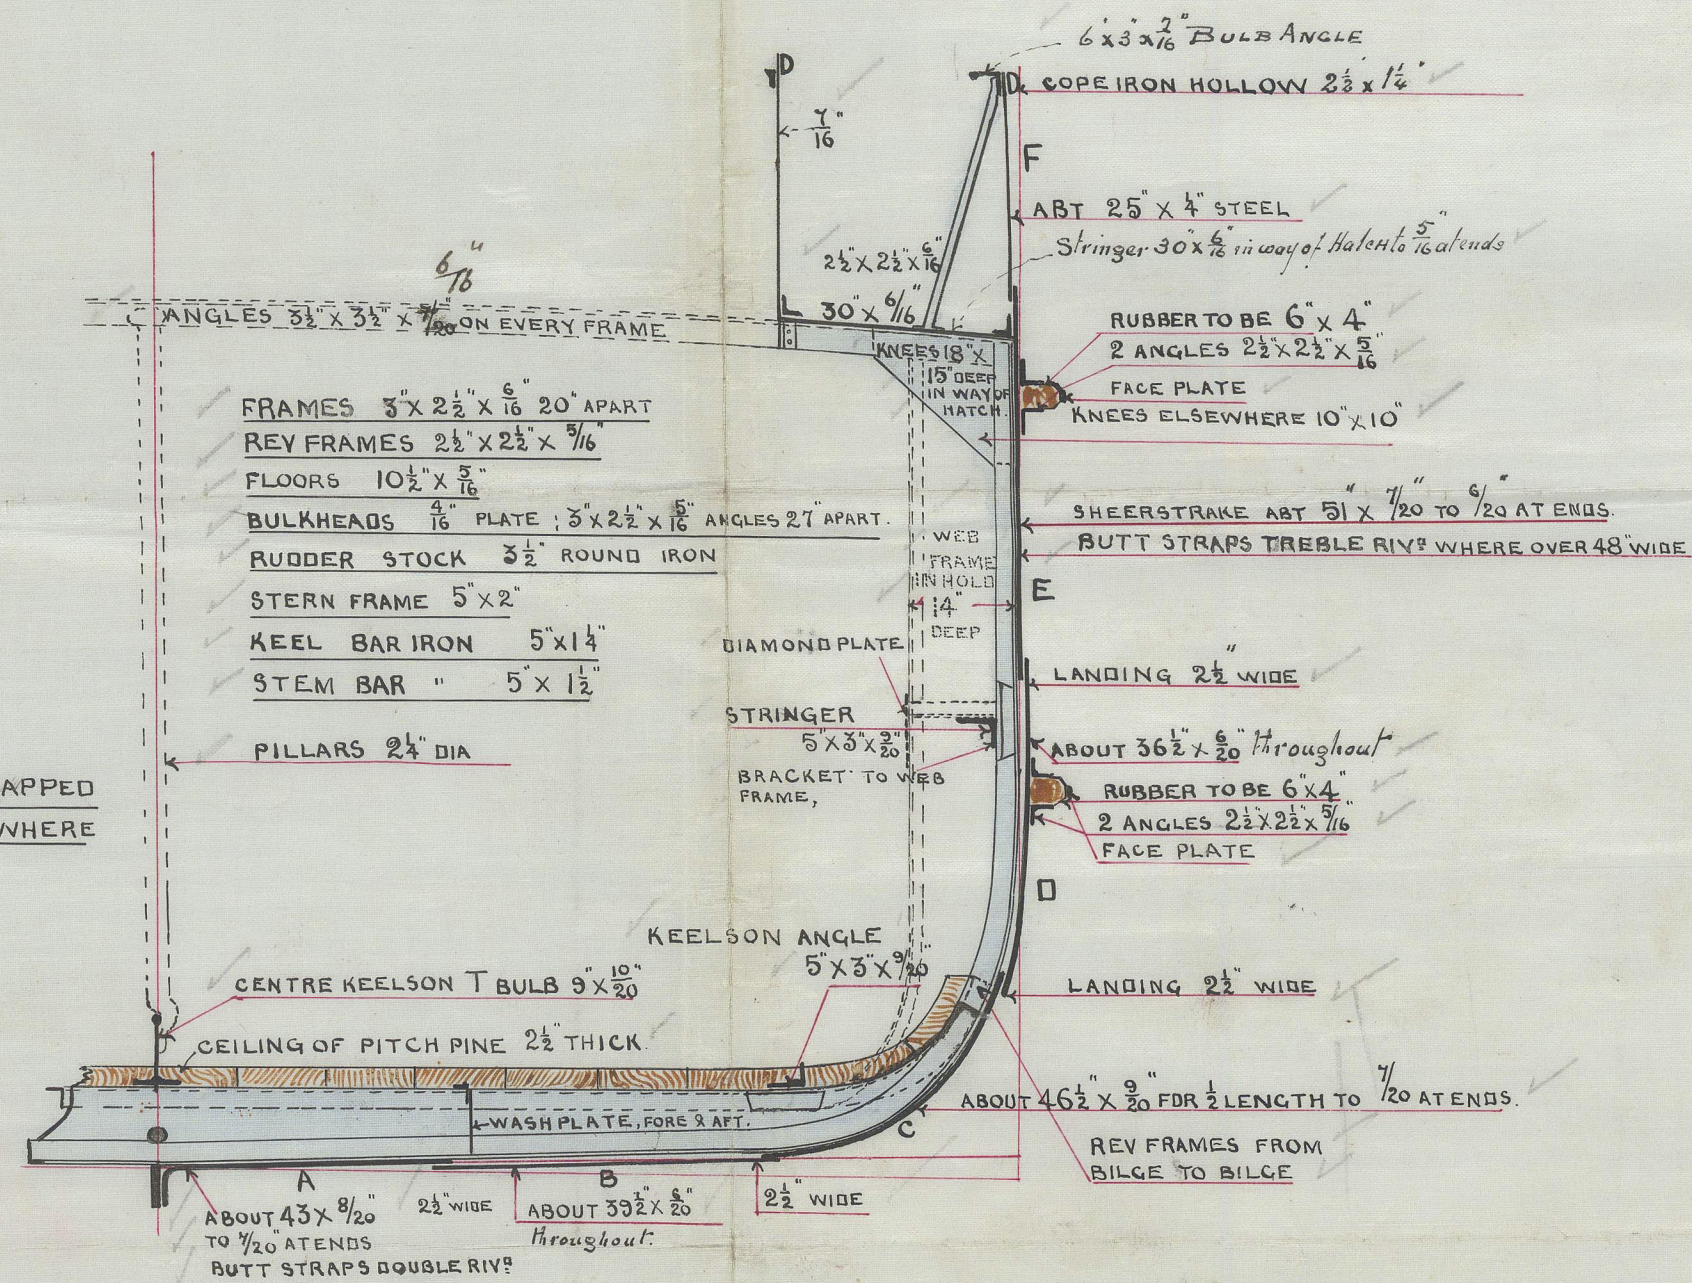 6" x 3" x 7/16" BULB ANGLE
D
D
COPE IRON HOLLOW 2½" x 1¼"
7/16"
F
ABT 25" X ¼" STEEL
Stringer 30" x 6/16" in way of Hatch to 5/16" at ends
2½" X 2½" X 6/16"
30" x 6/16"
6/16"
ANGLES 3½" X 3½" X 7/20" ON EVERY FRAME
RUBBER TO BE 6" X 4"
2 ANGLES 2½" X 2½" X 5/16"
FACE PLATE
KNEES ELSEWHERE 10" X 10"
KNEES 18" X
15" DEEP
IN WAY OF
HATCH.
FRAMES 3" X 2½" X 6/16" 20" APART
REV FRAMES 2½" X 2½" X 5/16"
FLOORS 10½" X 5/16"
BULKHEADS 4/16" PLATE ; 3" X 2½" X 5/16" ANGLES 27" APART.
RUDDER STOCK 3½" ROUND IRON
STERN FRAME 5" X 2"
KEEL BAR IRON 5" X 1¼"
STEM BAR " 5" X 1½"
PILLARS 2¼" DIA
SHEERSTRAKE ABT 51" X 7/20" TO 6/20" AT ENDS.
BUTT STRAPS TREBLE RIVD WHERE OVER 48" WIDE
WEB
FRAME
IN HOLD
14"
DEEP
E
DIAMOND PLATE
STRINGER
5" X 3" X 9/20"
BRACKET TO WEB
FRAME,
LANDING 2½" WIDE
ABOUT 36½" X 6/20" throughout
RUBBER TO BE 6" X 4"
2 ANGLES 2½" X 2½" X 5/16"
FACE PLATE
D
APPED
WHERE
KEELSON ANGLE
5" X 3" X 9/20"
CENTRE KEELSON T BULB 9" X 10/20"
CEILING OF PITCH PINE 2½" THICK.
LANDING 2½" WIDE
ABOUT 46½" X 9/20" FOR ½ LENGTH TO 7/20" AT ENDS.
WASH PLATE, FORE & AFT.
C
REV FRAMES FROM
BILGE TO BILGE
A
B
ABOUT 43 X 8/20"
TO 7/20" AT ENDS
BUTT STRAPS DOUBLE RIVD
2½" WIDE
ABOUT 39½" X 6/20"
throughout.
2½" WIDE